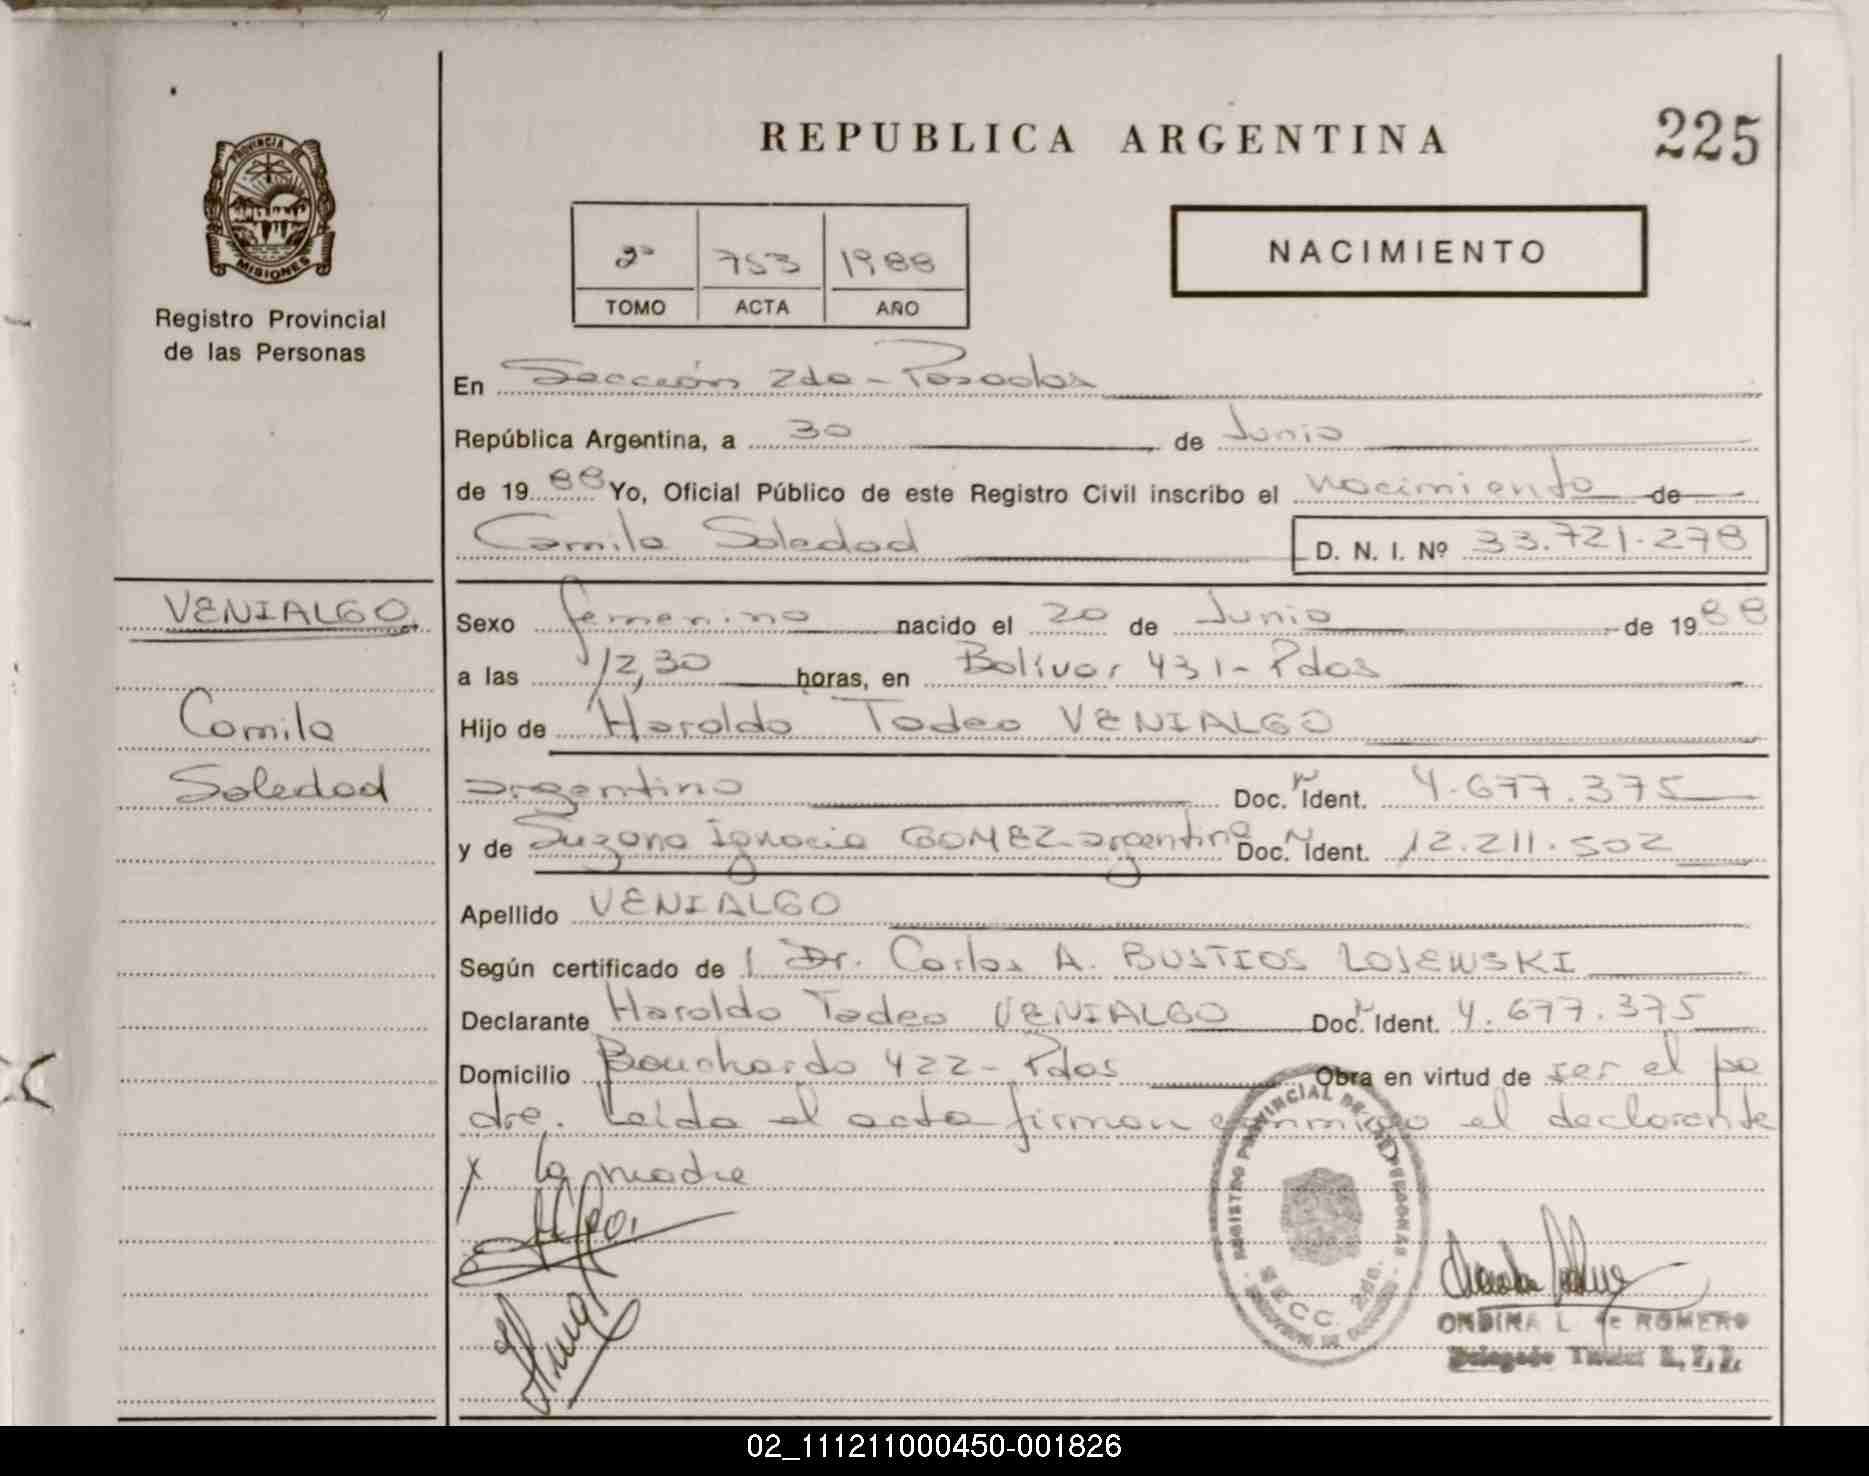 REPUBLICA ARGENTINA
225
PROVINCIA DE
MISIONES
Registro Provincial
de las Personas
2º 753 1988
TOMO ACTA AÑO
NACIMIENTO
En Sección 2da - Posadas
República Argentina, a 30 de Junio
de 19 88 Yo, Oficial Público de este Registro Civil inscribo el nacimiento de
Camila Soledad D. N. I. Nº 33.721.278
VENIALGO
Camila
Soledad
Sexo femenino nacido el 20 de Junio de 19 88
a las 12,30 horas, en Bolívar 431 - Pdas
Hijo de Haroldo Tadeo VENIALGO
argentino Doc. Ident. 4.677.375
y de Suzana Ignacia GOMEZ argentina Doc. Ident. 12.211.502
Apellido VENIALGO
Según certificado de l Dr. Carlos A. BUSTIOS LOJEWSKI
Declarante Haroldo Tadeo VENIALGO Doc. Ident. 4.677.375
Domicilio Bouchardo 422 - Pdas Obra en virtud de ser el pa
dre. Leída el acta firman conmigo el declarante
y la madre
REGISTRO PROVINCIAL DE LAS PERSONAS
SECC. 2da.
ONDINA L de ROMERO
Delegado Titular
02_111211000450-001826